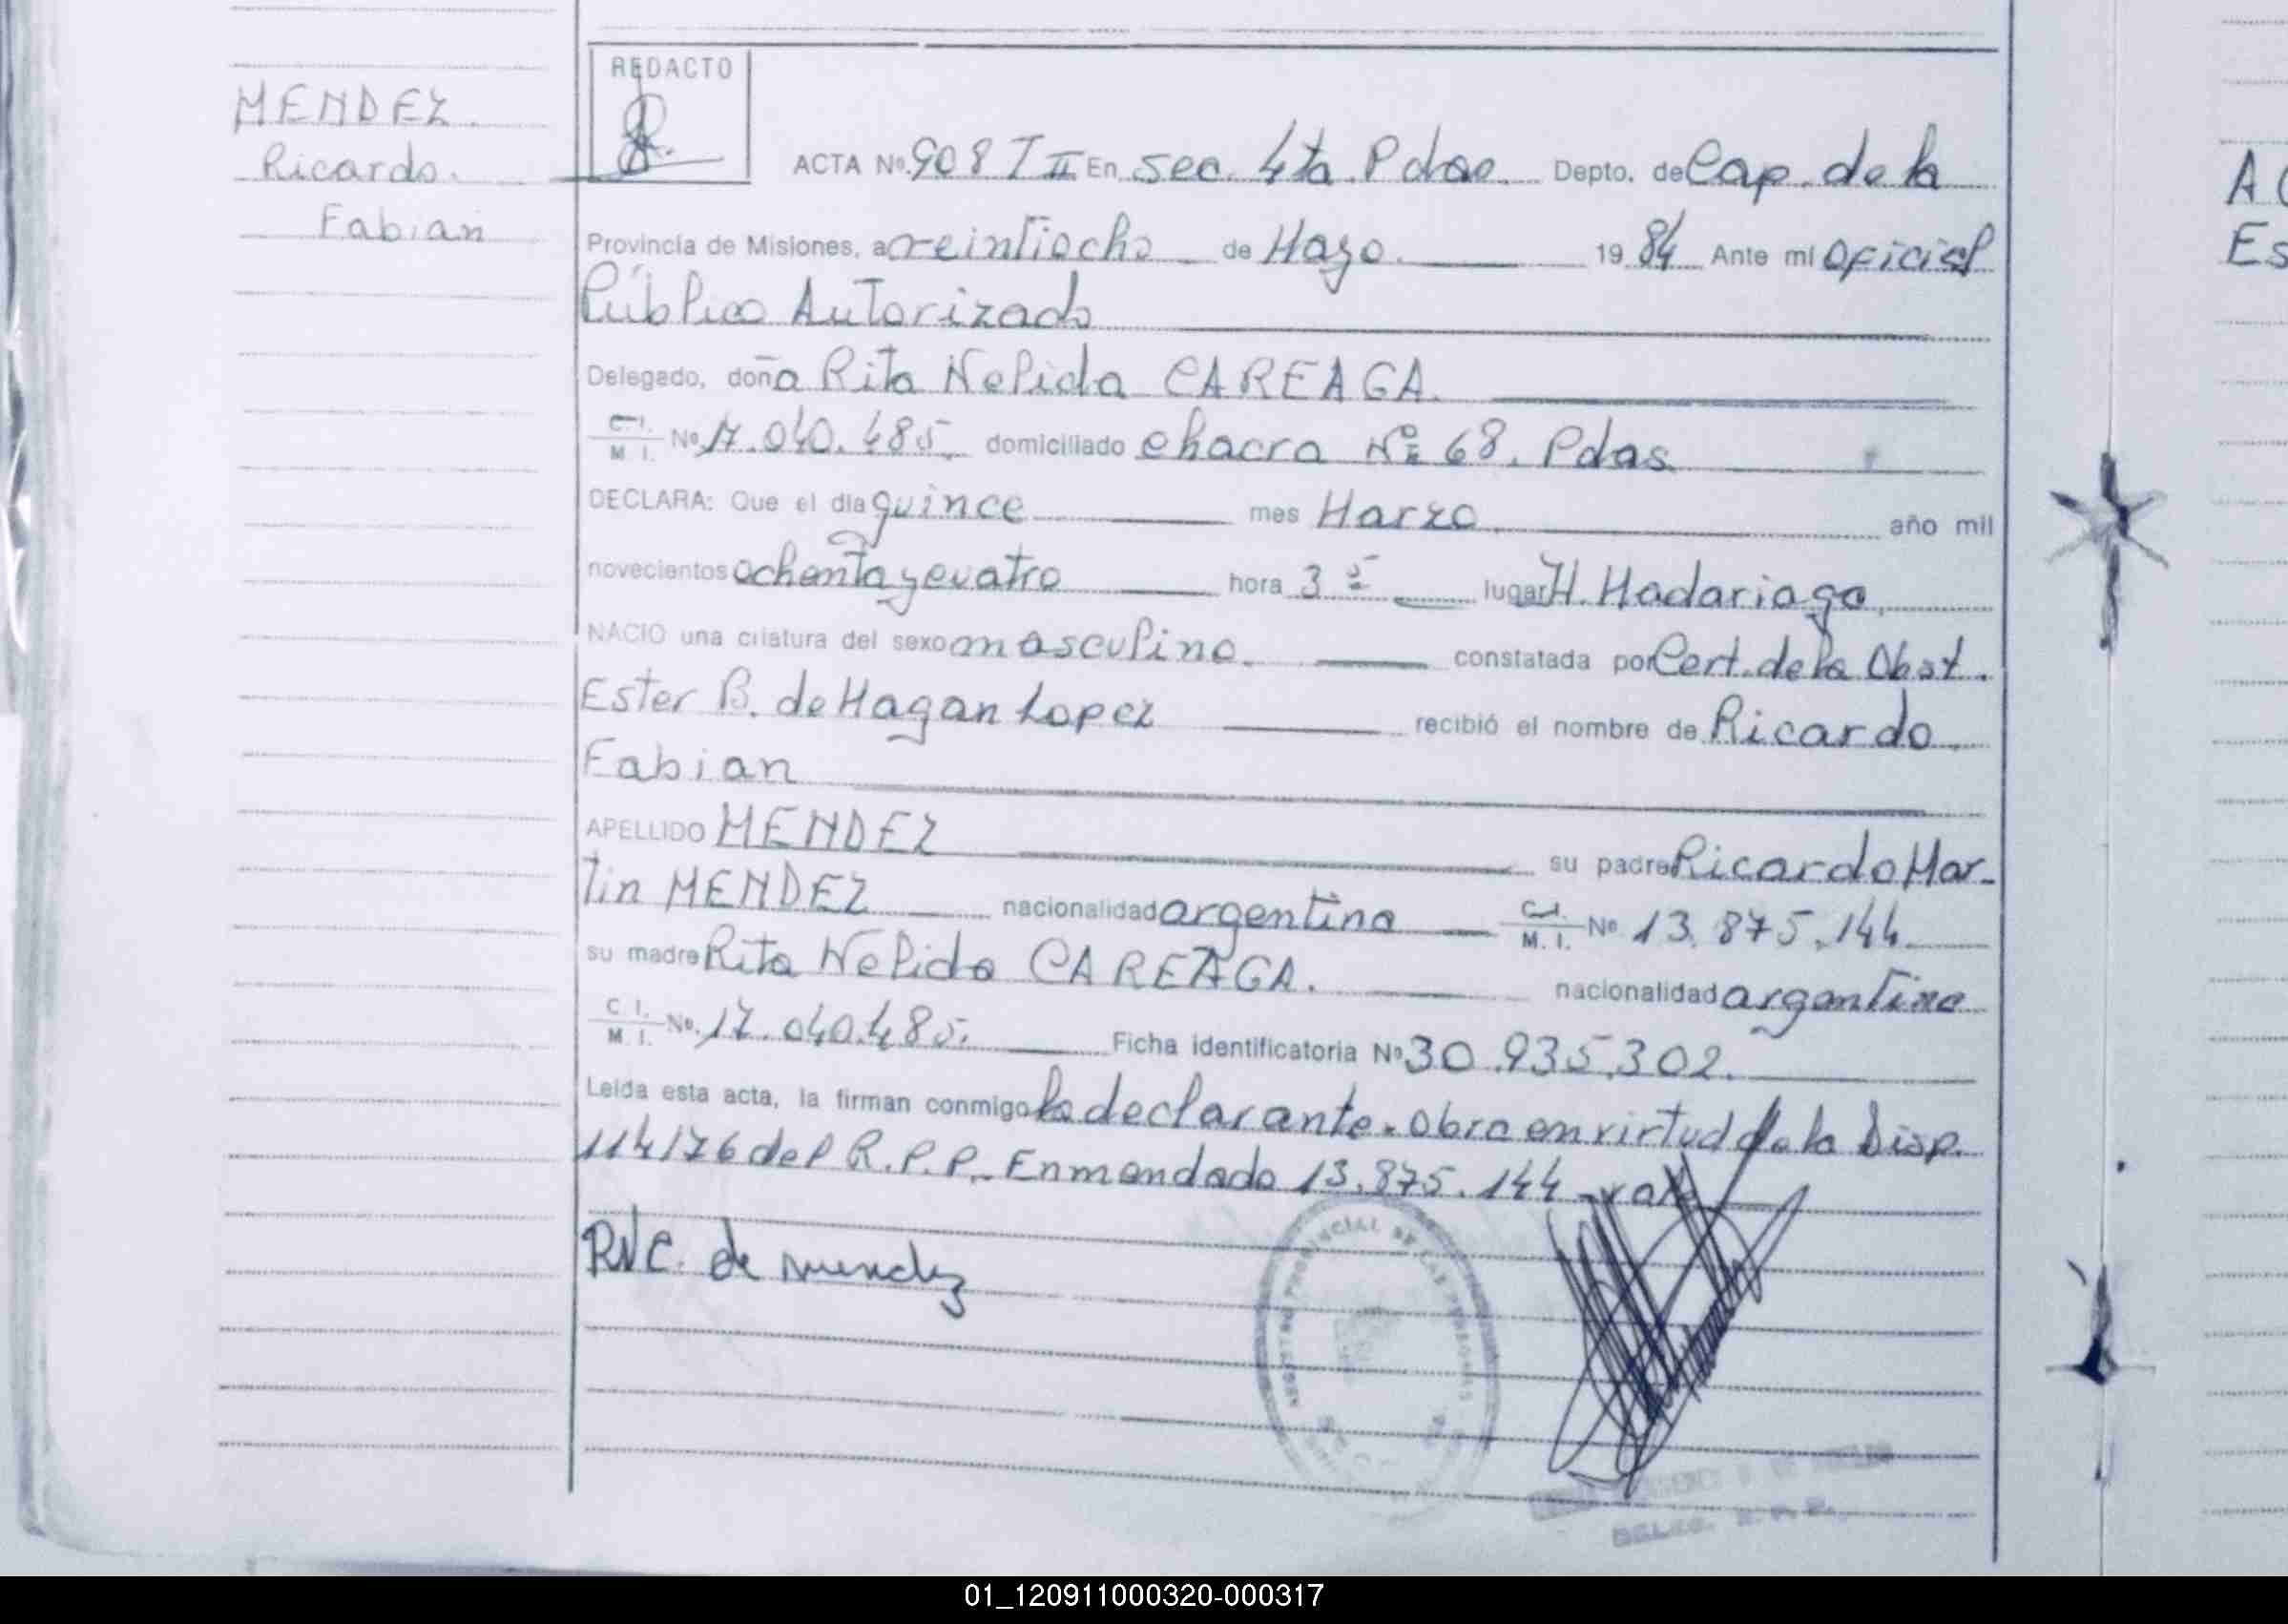 MENDEZ.
Ricardo.
Fabian
REDACTO
ACTA Nº 908 T II En sec. 4ta Pdas. Depto. de Cap. de la
Provincia de Misiones, a veintiocho de Mayo 1984 Ante mí Oficial
Público Autorizado
Delegado, doña Rita Nelida CAREAGA.
C.I. M. I. Nº 17.040.485. domiciliado chacra Nº 68. Pdas
DECLARA: Que el día quince mes Marzo año mil
novecientos ochenta y cuatro hora 3 lugar H. Madariaga
NACIO una criatura del sexo masculino. constatada por Cert. de la Obst.
Ester B. de Magan Lopez recibió el nombre de Ricardo
Fabian
APELLIDO MENDEZ su padre Ricardo Mar-
tin MENDEZ nacionalidad argentina C.I. M. I. Nº 13.875.144
su madre Rita Nelida CAREAGA. nacionalidad argentina
C I. M. I. Nº. 17.040.485. Ficha identificatoria Nº 30.935.302.
Leída esta acta, la firman conmigo la declarante. Obra en virtud de la Disp.
114/76 del R.P.P. Enmendado 13.875.144 - vale
RNC. de mendez
REGISTRO PROVINCIAL DE LAS PERSONAS
A
Es
01_120911000320-000317